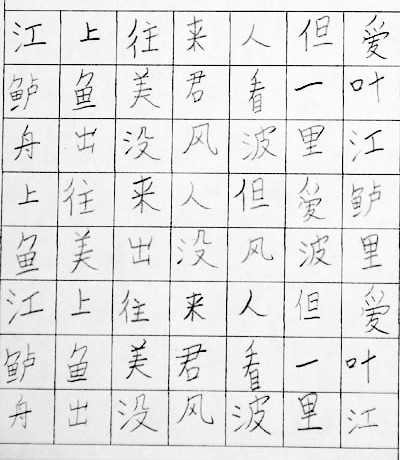 江上往来人但爱
鲈鱼美君看一叶
舟出没风波里江
上往来人但爱鲈
鱼美出没风波里
江上往来人但爱
鲈鱼美君看一叶
舟出没风波里江